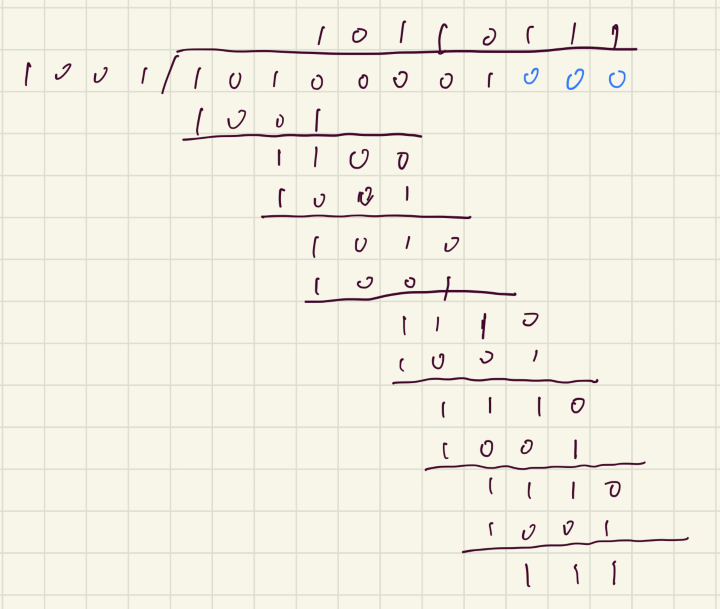 1 0 1 1 0 1 1 1
1 0 0 1 / 1 0 1 0 0 0 0 1 0 0 0
1 0 0 1
1 1 0 0
1 0 0 1
1 0 1 0
1 0 0 1
1 1 1 0
1 0 0 1
1 1 1 0
1 0 0 1
1 1 1 0
1 0 0 1
1 1 1